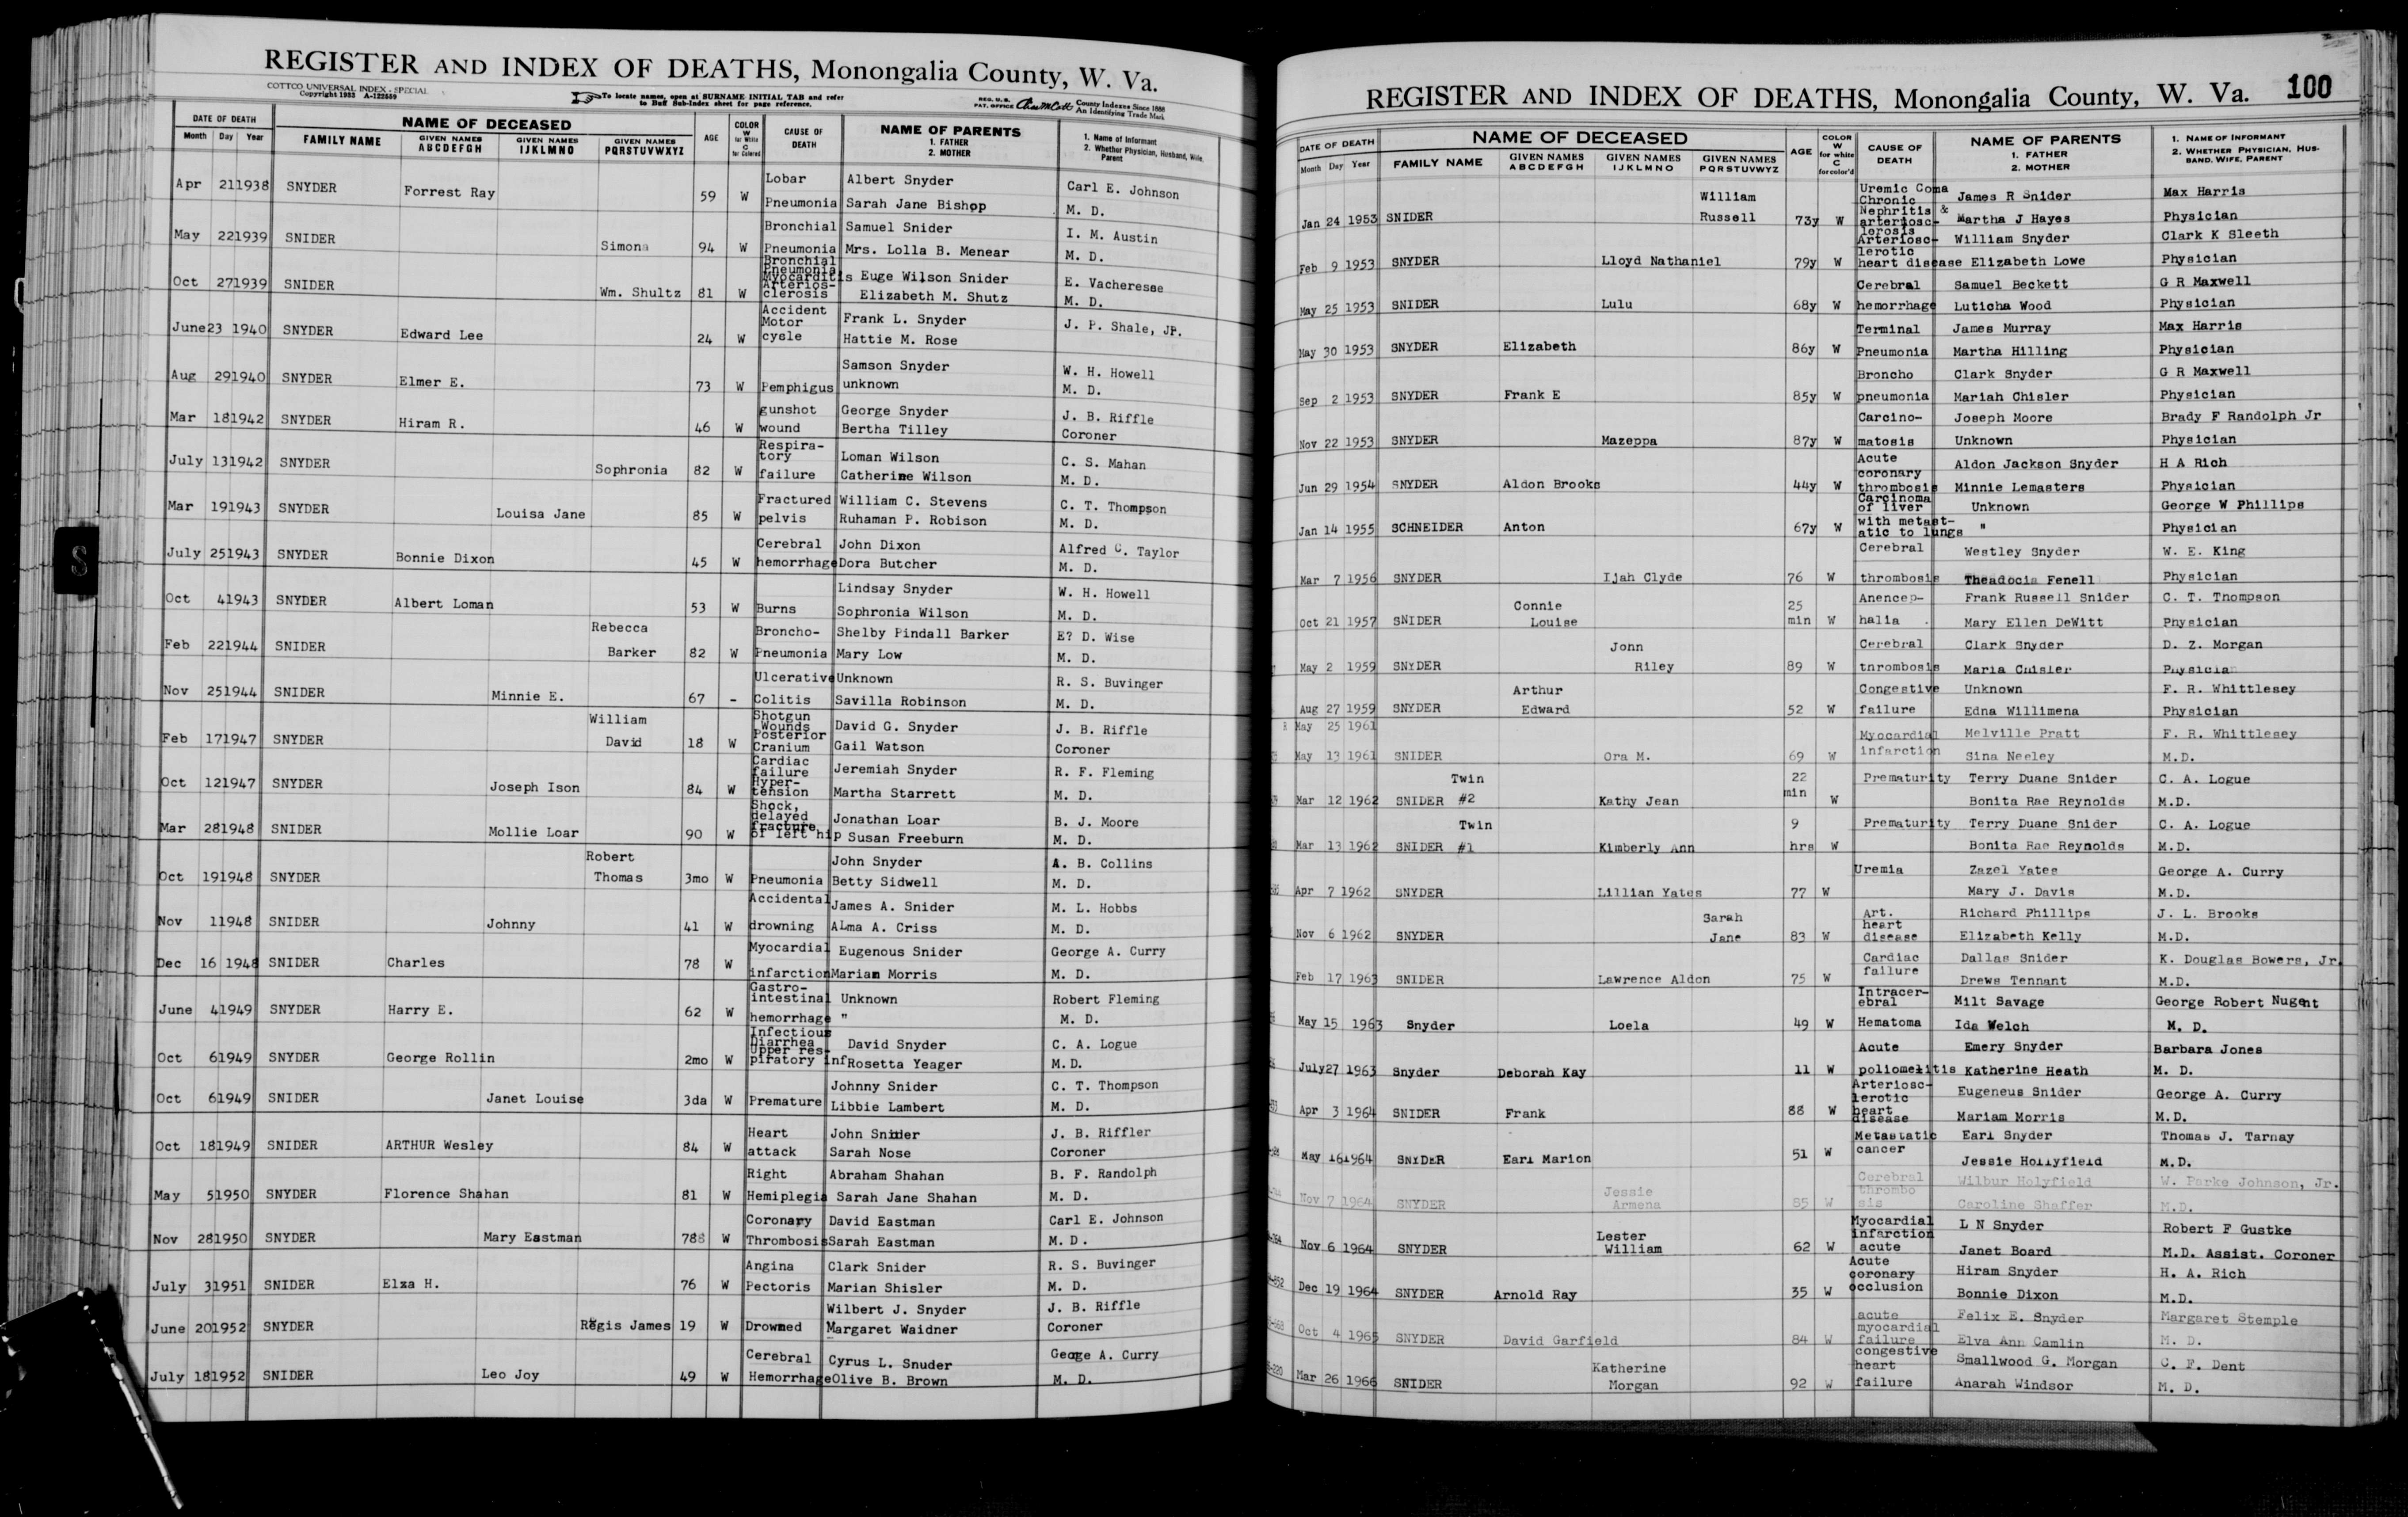 REGISTER AND INDEX OF DEATHS, Monongalia County, W. Va.
COTTCO UNIVERSAL INDEX - SPECIAL
Copyright 1933 A-122559
To locate names, open at SURNAME INITIAL TAB and refer
to Buff Sub-Index sheet for page reference.
REG. U.S. PAT. OFFICE County Indexes Since 1888
An Identifying Trade Mark
DATE OF DEATH NAME OF DECEASED AGE COLOR W for White C for Colored CAUSE OF DEATH NAME OF PARENTS 1. FATHER 2. MOTHER 1. Name of Informant 2. Whether Physician, Husband, Wife, Parent
Month Day Year FAMILY NAME GIVEN NAMES ABCDEFGH GIVEN NAMES IJKLMNO GIVEN NAMES PQRSTUVWXYZ
Apr 21 1938 SNYDER Forrest Ray 59 W Lobar Pneumonia Albert Snyder Sarah Jane Bishop Carl E. Johnson M. D.
May 22 1939 SNIDER Simona 94 W Bronchial Pneumonia Samuel Snider Mrs. Lolla B. Menear I. M. Austin M. D.
Oct 27 1939 SNIDER Wm. Shultz 81 W Bronchial Pneumonia Myocarditis Arterios-clerosis Euge Wilson Snider Elizabeth M. Shutz E. Vacheresse M. D.
June 23 1940 SNYDER Edward Lee 24 W Accident Motor cycle Frank L. Snyder Hattie M. Rose J. P. Shale, JP.
Aug 29 1940 SNYDER Elmer E. 73 W Pemphigus Samson Snyder unknown W. H. Howell M. D.
Mar 18 1942 SNYDER Hiram R. 46 W gunshot wound George Snyder Bertha Tilley J. B. Riffle Coroner
July 13 1942 SNYDER Sophronia 82 W Respira-tory failure Loman Wilson Catherine Wilson C. S. Mahan M. D.
Mar 19 1943 SNYDER Louisa Jane 85 W Fractured pelvis William C. Stevens Ruhaman P. Robison C. T. Thompson M. D.
July 25 1943 SNYDER Bonnie Dixon 45 W Cerebral hemorrhage John Dixon Dora Butcher Alfred C. Taylor M. D.
Oct 4 1943 SNYDER Albert Loman 53 W Burns Lindsay Snyder Sophronia Wilson W. H. Howell M. D.
Feb 22 1944 SNIDER Rebecca Barker 82 W Broncho-Pneumonia Shelby Pindall Barker Mary Low E? D. Wise M. D.
Nov 25 1944 SNIDER Minnie E. 67 - Ulcerative Colitis Unknown Savilla Robinson R. S. Buvinger M. D.
Feb 17 1947 SNYDER William David 18 W Shotgun Wounds Posterior Cranium David G. Snyder Gail Watson J. B. Riffle Coroner
Oct 12 1947 SNYDER Joseph Ison 84 W Cardiac failure Hyper-tension Jeremiah Snyder Martha Starrett R. F. Fleming M. D.
Mar 28 1948 SNIDER Mollie Loar 90 W Shock, delayed fracture of left hip Jonathan Loar Susan Freeburn B. J. Moore M. D.
Oct 19 1948 SNYDER Robert Thomas 3mo W Pneumonia John Snyder Betty Sidwell A. B. Collins M. D.
Nov 1 1948 SNIDER Johnny 41 W Accidental drowning James A. Snider ALma A. Criss M. L. Hobbs M. D.
Dec 16 1948 SNIDER Charles 78 W Myocardial infarction Eugenous Snider Mariam Morris George A. Curry M. D.
June 4 1949 SNYDER Harry E. 62 W Gastro-intestinal hemorrhage Unknown " Robert Fleming M. D.
Oct 6 1949 SNYDER George Rollin 2mo W Infectious Diarrhea Upper res-piratory inf David Snyder Rosetta Yeager C. A. Logue M.D.
Oct 6 1949 SNIDER Janet Louise 3da W Premature Johnny Snider Libbie Lambert C. T. Thompson M. D.
Oct 18 1949 SNIDER ARTHUR Wesley 84 W Heart attack John Snider Sarah Nose J. B. Riffler Coroner
May 5 1950 SNYDER Florence Shahan 81 W Right Hemiplegia Abraham Shahan Sarah Jane Shahan B. F. Randolph M. D.
Nov 28 1950 SNYDER Mary Eastman 788 W Coronary Thrombosis David Eastman Sarah Eastman Carl E. Johnson M. D.
July 3 1951 SNIDER Elza H. 76 W Angina Pectoris Clark Snider Marian Shisler R. S. Buvinger M. D.
June 20 1952 SNYDER Regis James 19 W Drowned Wilbert J. Snyder Margaret Waidner J. B. Riffle Coroner
July 18 1952 SNIDER Leo Joy 49 W Cerebral Hemorrhage Cyrus L. Snuder Olive B. Brown Geoge A. Curry M. D.
S
REGISTER AND INDEX OF DEATHS, Monongalia County, W. Va. 100
DATE OF DEATH NAME OF DECEASED AGE COLOR W for white C for color'd CAUSE OF DEATH NAME OF PARENTS 1. FATHER 2. MOTHER 1. NAME OF INFORMANT 2. WHETHER PHYSICIAN, HUS-BAND, WIFE, PARENT
Month Day Year FAMILY NAME GIVEN NAMES ABCDEFGH GIVEN NAMES IJKLMNO GIVEN NAMES PQRSTUVWXYZ
Jan 24 1953 SNIDER William Russell 73y W Uremic Coma Chronic Nephritis & arteriosc-lerosis James R Snider Martha J Hayes Max Harris Physician
Feb 9 1953 SNYDER Lloyd Nathaniel 79y W Arteriosc-lerotic heart disease William Snyder Elizabeth Lowe Clark K Sleeth Physician
May 25 1953 SNIDER Lulu 68y W Cerebral hemorrhage Samuel Beckett Luticha Wood G R Maxwell Physician
May 30 1953 SNYDER Elizabeth 86y W Terminal Pneumonia James Murray Martha Hilling Max Harris Physician
Sep 2 1953 SNYDER Frank E 85y W Broncho pneumonia Clark Snyder Mariah Chisler G R Maxwell Physician
Nov 22 1953 SNYDER Mazeppa 87y W Carcino-matosis Joseph Moore Unknown Brady F Randolph Jr Physician
Jun 29 1954 SNYDER Aldon Brooks 44y W Acute coronary thrombosis Aldon Jackson Snyder Minnie Lemasters H A Rich Physician
Jan 14 1955 SCHNEIDER Anton 67y W Carcinoma of liver with metast-atic to lungs Unknown " George W Phillips Physician
Mar 7 1956 SNYDER Ijah Clyde 76 W Cerebral thrombosis Westley Snyder Theadocia Fenell W. E. King Physician
Oct 21 1957 SNIDER Connie Louise 25 min W Anencep-halia Frank Russell Snider Mary Ellen DeWitt C. T. Tnompson Physician
May 2 1959 SNYDER John Riley 89 W Cerebral tnrombosis Clark Snyder Maria Chisler D. Z. Morgan Physician
Aug 27 1959 SNYDER Arthur Edward 52 W Congestive failure Unknown Edna Willimena F. R. Whittlesey Physician
May 25 1961
May 13 1961 SNIDER Ora M. 69 W Myocardial infarction Melville Pratt Sina Neeley F. R. Whittlesey M.D.
Mar 12 1962 SNIDER Twin #2 Kathy Jean 22 min W Prematurity Terry Duane Snider Bonita Rae Reynolds C. A. Logue M.D.
Mar 13 1962 SNIDER Twin #1 Kimberly Ann 9 hrs W Prematurity Terry Duane Snider Bonita Rae Reynolds C. A. Logue M.D.
Apr 7 1962 SNYDER Lillian Yates 77 W Uremia Zazel Yates Mary J. Davis George A. Curry M.D.
Nov 6 1962 SNYDER Sarah Jane 83 W Art. heart disease Richard Phillips Elizabeth Kelly J. L. Brooks M.D.
Feb 17 1963 SNIDER Lawrence Aldon 75 W Cardiac failure Dallas Snider Drews Tennant K. Douglas Bowers, Jr. M.D.
May 15 1963 Snyder Loela 49 W Intracer-ebral Hematoma Milt Savage Ida Welch George Robert Nugent M. D.
July 27 1963 Snyder Deborah Kay 11 W Acute poliomelitis Emery Snyder Katherine Heath Barbara Jones M. D.
Apr 3 1964 SNIDER Frank 88 W Arteriosc-lerotic heart disease Eugeneus Snider Mariam Morris George A. Curry M.D.
May 16 1964 SNYDER Earl Marion 51 W Metastatic cancer Earl Snyder Jessie Hollyfield Thomas J. Tarnay M.D.
Nov 7 1964 SNYDER Jessie Armena 85 W Cerebral thrombo sis Wilbur Holyfield Caroline Shaffer W. Parke Johnson, Jr. M.D.
Nov 6 1964 SNYDER Lester William 62 W Myocardial infarction acute L N Snyder Janet Board Robert F Gustke M.D. Assist. Coroner
Dec 19 1964 SNYDER Arnold Ray 35 W Acute coronary occlusion Hiram Snyder Bonnie Dixon H. A. Rich M.D.
Oct 4 1965 SNYDER David Garfield 84 W acute myocardial failure Felix E. Snyder Elva Ann Camlin Margaret Stemple M. D.
Mar 26 1966 SNIDER Katherine Morgan 92 W congestive heart failure Smallwood G. Morgan Anarah Windsor C. F. Dent M. D.